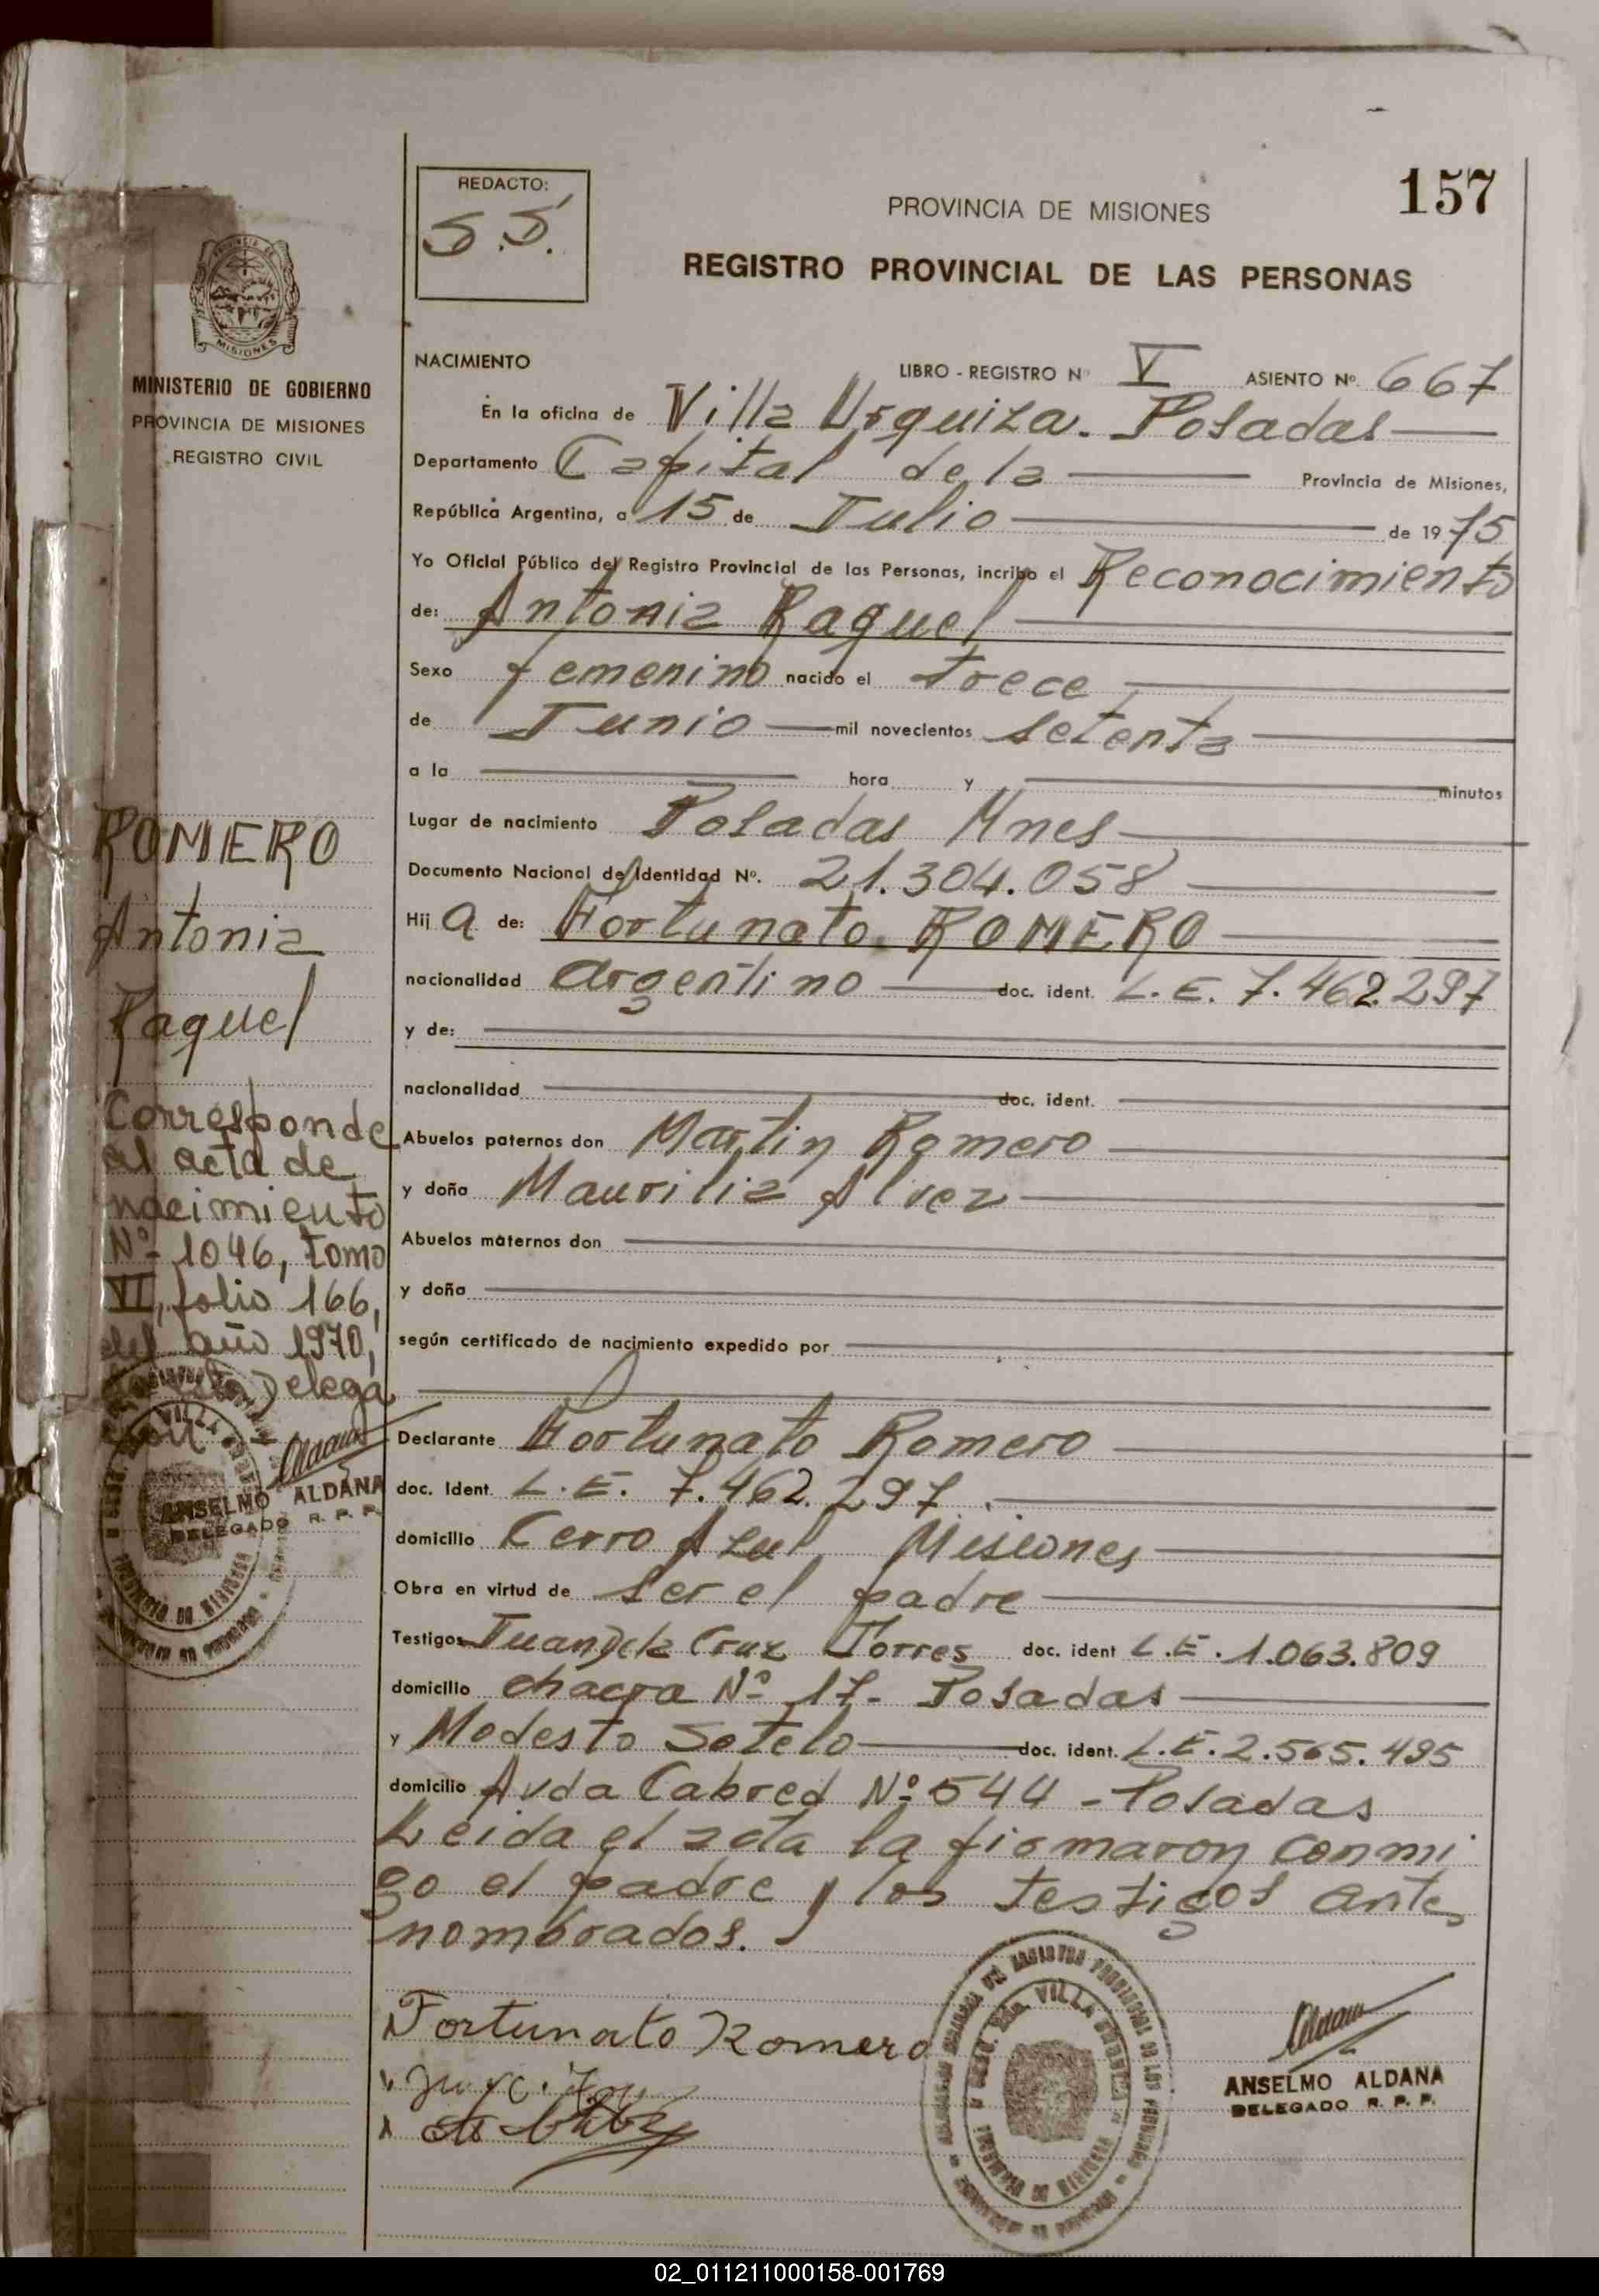 157
REDACTO:
S.S.
PROVINCIA DE MISIONES
REGISTRO PROVINCIAL DE LAS PERSONAS
MISIONES
MINISTERIO DE GOBIERNO
PROVINCIA DE MISIONES
REGISTRO CIVIL
NACIMIENTO LIBRO - REGISTRO Nº V ASIENTO Nº. 667
En la oficina de Villa Urquiza. Posadas
Departamento Capital de la Provincia de Misiones,
República Argentina, a 15 de Julio de 1975
Yo Oficial Público del Registro Provincial de las Personas, incribo el Reconocimiento
de: Antonia Raquel
Sexo femenino nacido el trece
de Junio mil novecientos setenta
a la hora y minutos
Lugar de nacimiento Posadas Mnes
Documento Nacional de Identidad Nº. 21.304.058
Hij a de: Fortunato ROMERO
nacionalidad argentino doc. ident. L.E. 7.462.297
y de:
nacionalidad doc. ident.
Abuelos paternos don Martin Romero
y doña Maurilia Alvez
Abuelos maternos don
y doña
según certificado de nacimiento expedido por
Declarante Fortunato Romero
doc. Ident. L.E. 7.462.297.
domicilio Cerro Azul Misiones
Obra en virtud de ser el padre
Testigos Juan de la Cruz Torres doc. ident L.E. 1.063.809
domicilio chacra Nº 17- Posadas
y Modesto Sotelo doc. ident. L.E. 2.565.495
domicilio Avda Cabred Nº 544 - Posadas
Leida el acta la firmaron conmi
go el padre y los testigos ante
nombrados.
Fortunato Romero
ANSELMO ALDANA
DELEGADO R. P. P.
VILLA URQUIZA
PROVINCIA DE MISIONES
ROMERO
Antonia
Raquel
Corresponde
al acta de
nacimiento
Nº 1046, tomo
VI, folio 166,
del año 1970,
Delega
ANSELMO ALDANA
DELEGADO R. P. P.
VILLA
PROVINCIA DE MISIONES
02_011211000158-001769